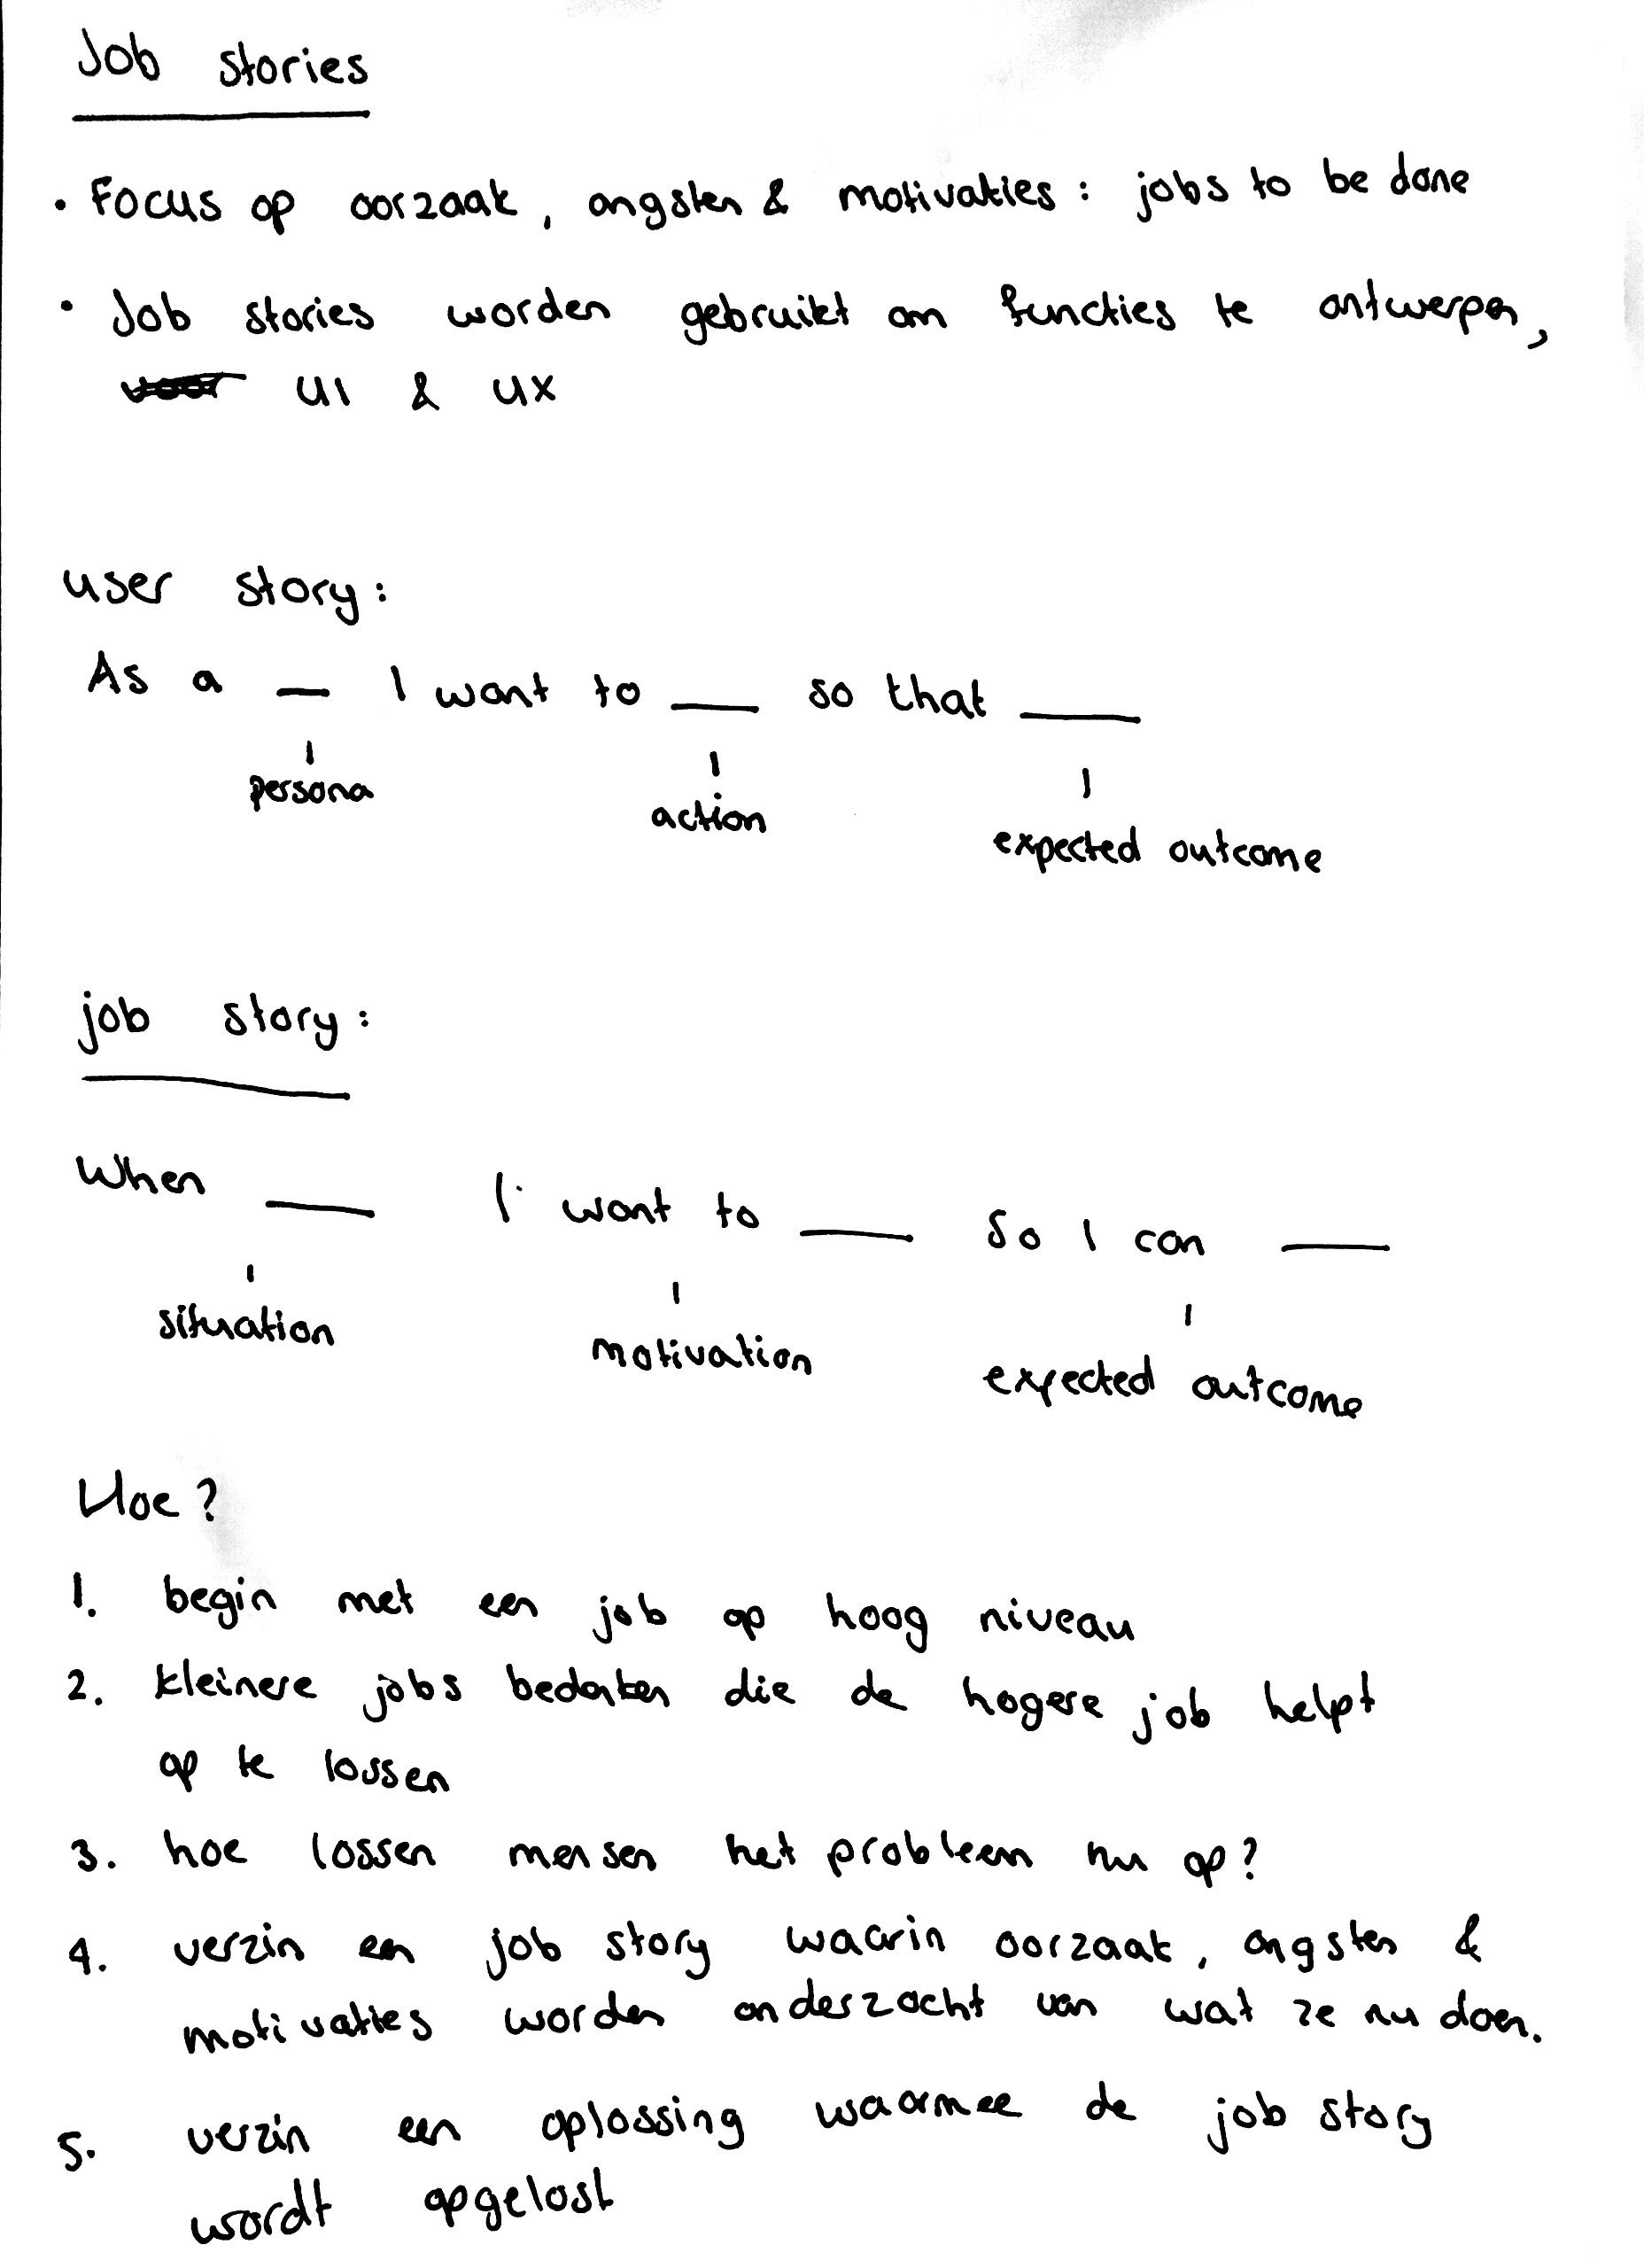 Job stories
• Focus op oorzaak, angsten & motivaties: jobs to be done
• Job stories worden gebruikt om functies te ontwerpen,
UI & UX
user story:
As a __ I want to ___ so that ____
persona
action
expected outcome
job story:
When ____ I want to ____ So I can ____
situation
motivation
expected outcome
Hoe?
1. begin met een job op hoog niveau
2. kleinere jobs bedenken die de hogere job helpt
op te lossen
3. hoe lossen mensen het probleem nu op?
4. verzin een job story waarin oorzaak, angsten &
motivaties worden onderzocht van wat ze nu doen.
5. verzin een oplossing waarmee de job story
wordt opgelost